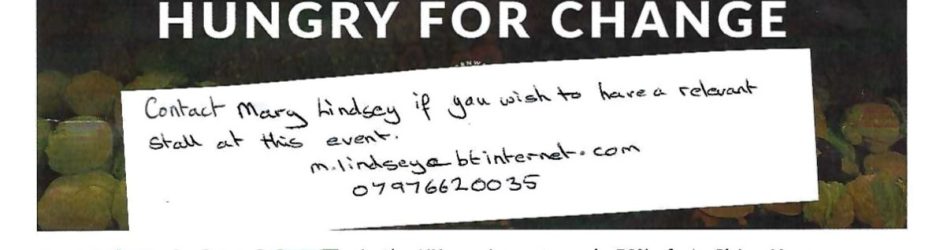 HUNGRY FOR CHANGE
Contact Mary Lindsey if you wish to have a relevant
stall at this event.
m.lindsey@btinternet.com
07976620035